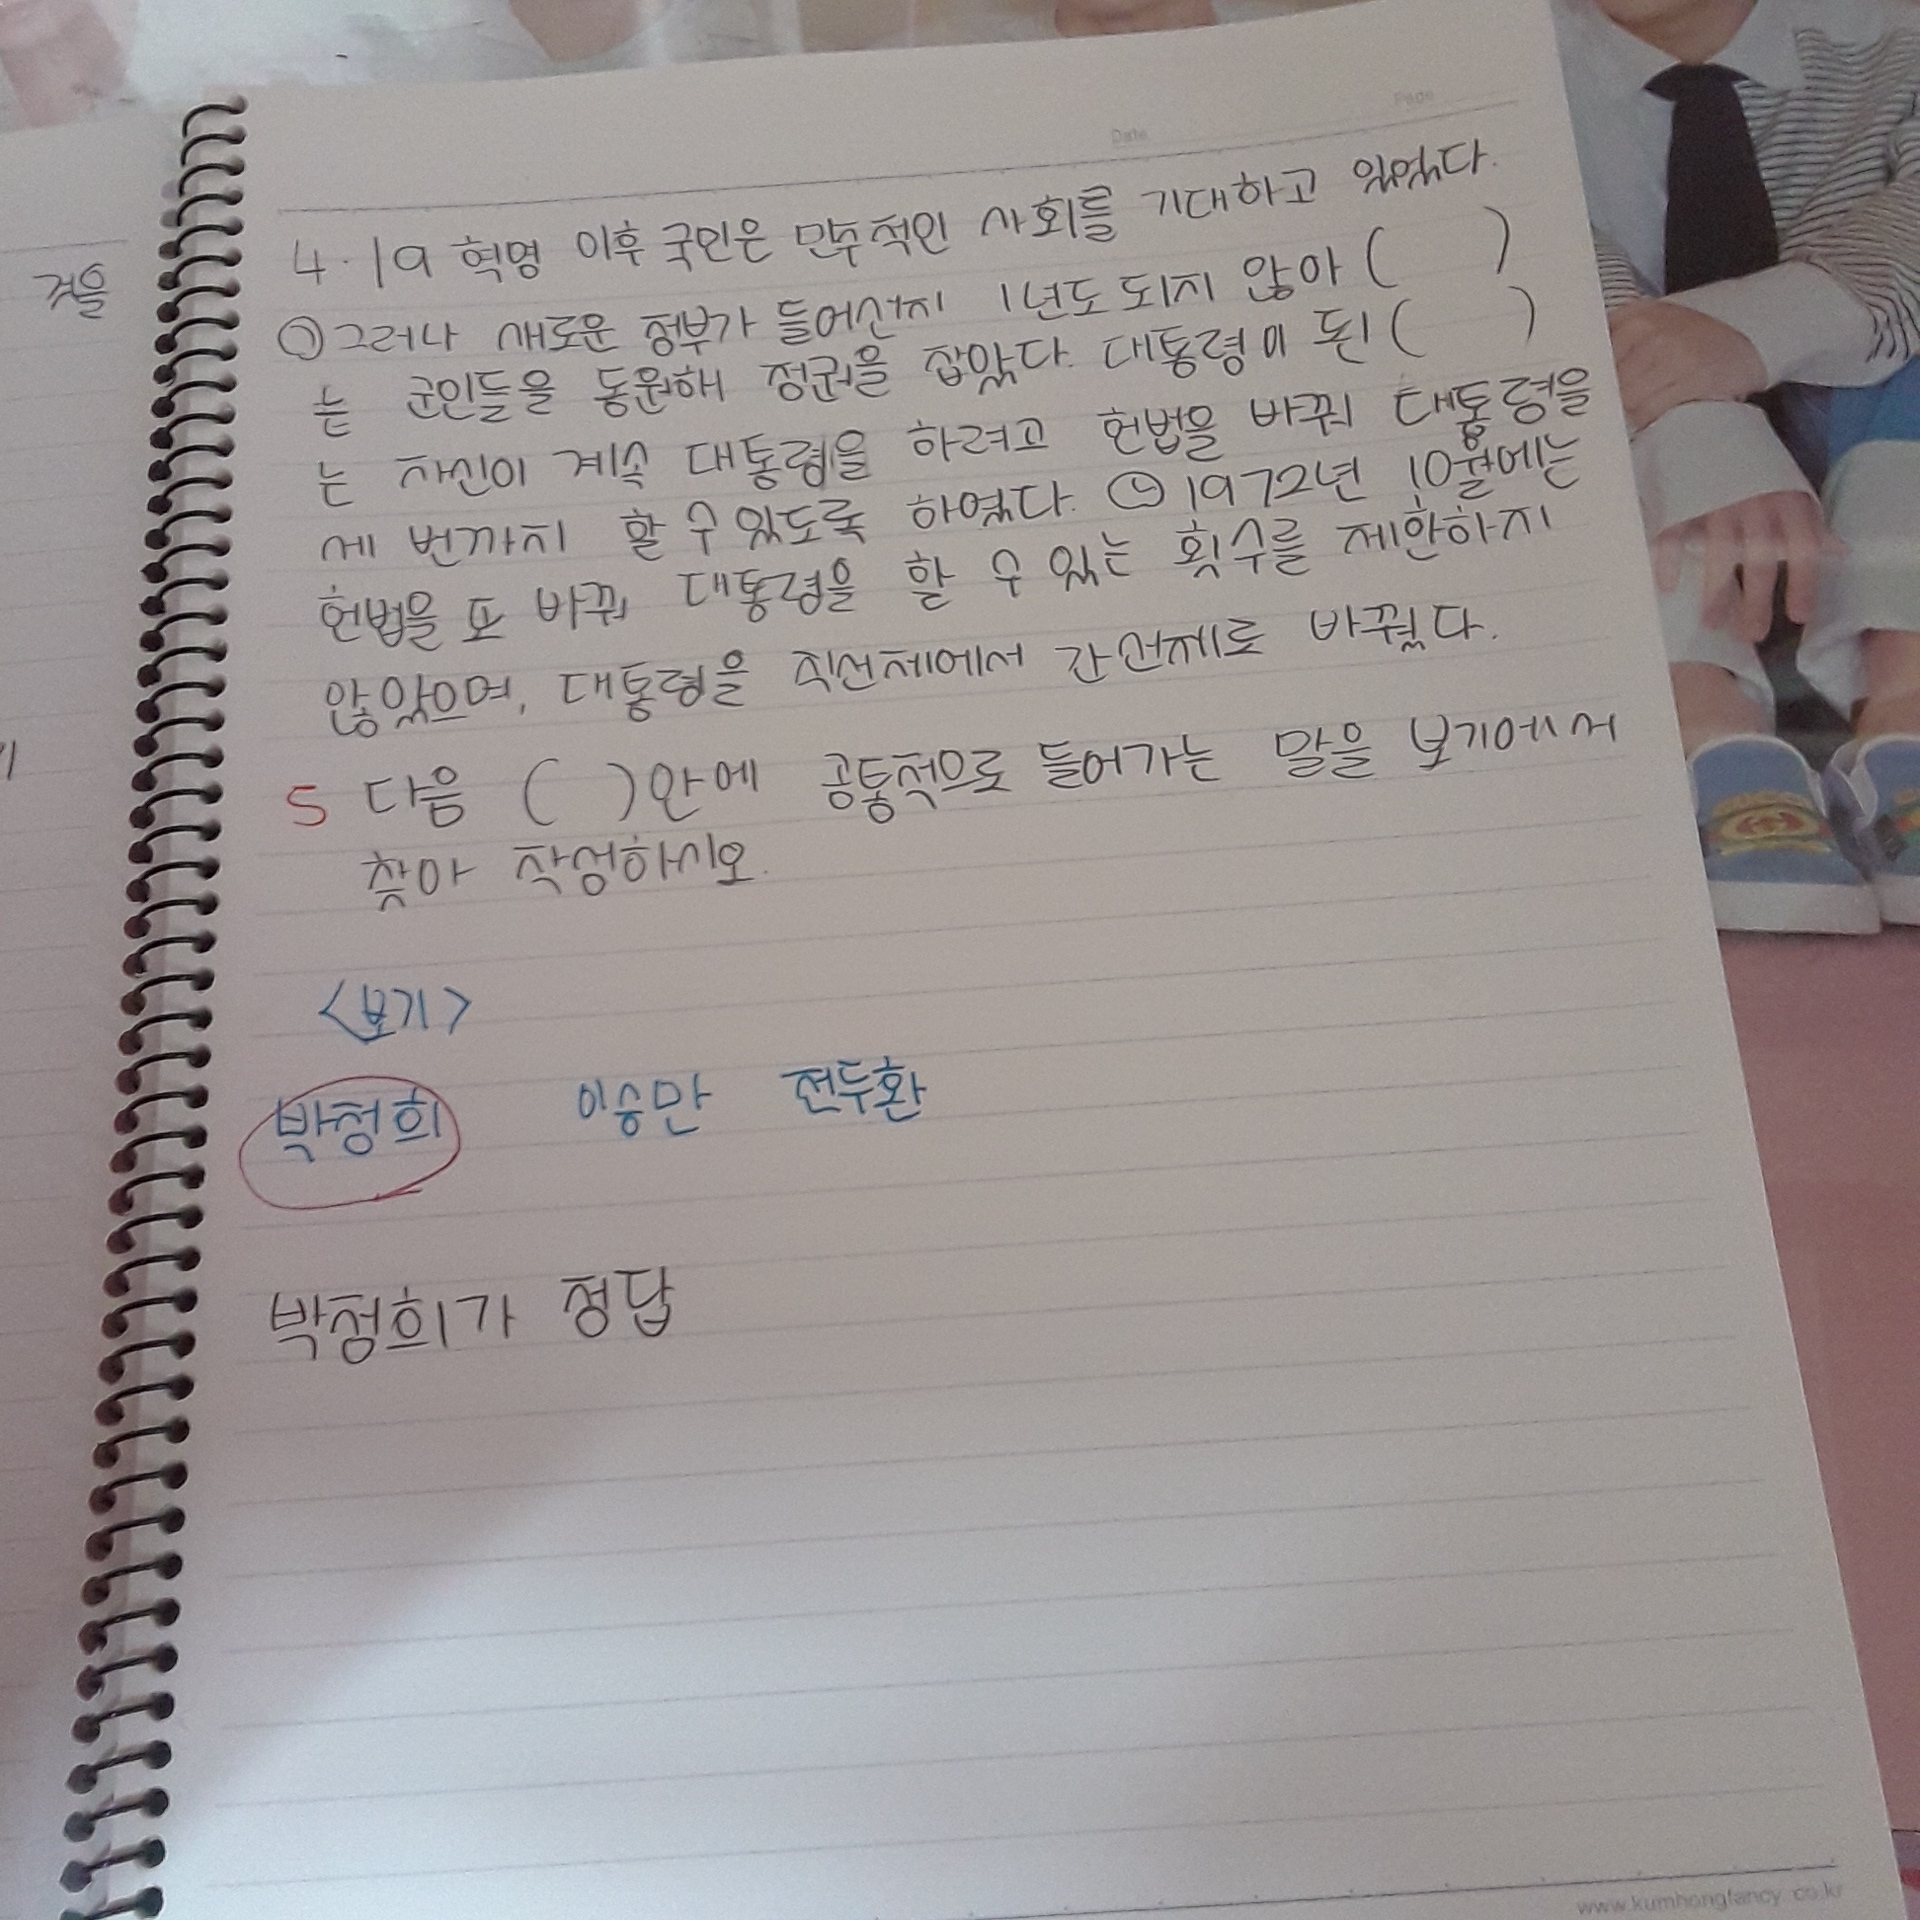 겨울
Date
Page
4.19 혁명 이후 국민은 민주적인 사회를 기대하고 있었다.
㉠그러나 새로운 정부가 들어선지 1년도 되지 않아 (    )
는 군인들을 동원해 정권을 잡았다. 대통령이 된 (    )
는 자신이 계속 대통령을 하려고 헌법을 바꿔 대통령을
세 번까지 할 수 있도록 하였다. ㉡1972년 10월에는
헌법을 또 바꿔 대통령을 할 수 있는 횟수를 제한하지
않았으며, 대통령을 직선제에서 간선제로 바꿨다.
5 다음 (  )안에 공통적으로 들어가는 말을 보기에서
찾아 작성하시오.
<보기>
박정희 이승만 전두환
박정희가 정답
www.kumhongfancy.co.kr